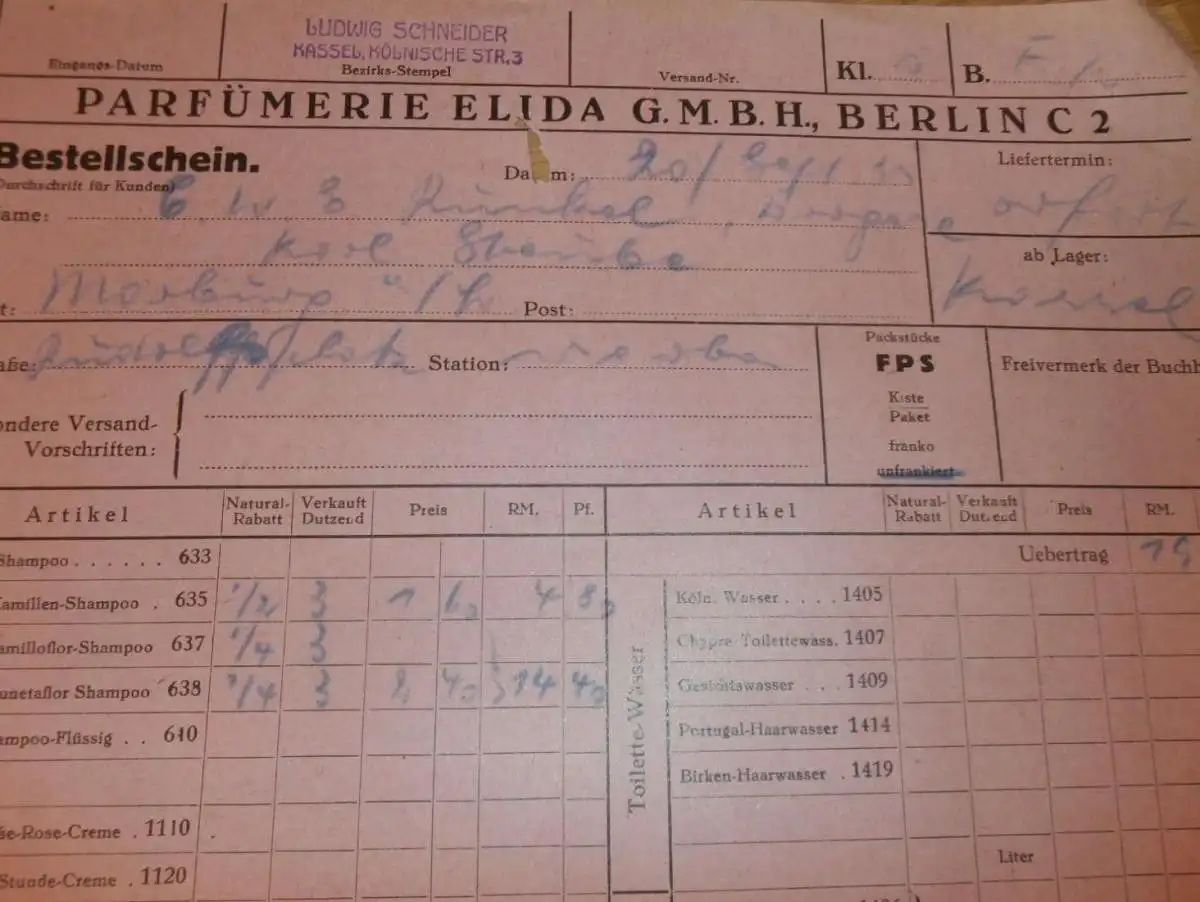 LUDWIG SCHNEIDER
KASSEL, KÖLNISCHE STR. 3
Eingangs-Datum
Bezirks-Stempel
Versand-Nr.
Kl.
B.
PARFÜMERIE ELIDA G. M. B. H., BERLIN C 2
Bestellschein.
Durchschrift für Kunden)
Datum:
Liefertermin:
ame:
ab Lager:
Karl
Marburg
t:
Post:
Kassel
aße:
Station:
Packstücke
FPS
Kiste
Paket
franko
unfrankiert
Freivermerk der Buchh
ondere Versand-
Vorschriften:
Artikel Natural-Rabatt Verkauft Dutzend Preis RM. Pf. Artikel Natural-Rabatt Verkauft Dutzend Preis RM.
Shampoo . . . . . . 633
Uebertrag 19
amilien-Shampoo . 635 1/2 3 1 60 4 80
Köln. Wasser . . . . 1405
amilloflor-Shampoo 637 1/4 3
Chypre Toilettewass. 1407
unetaflor Shampoo 638 1/4 3 2 40 } 14 40
Gesichtswasser . . . 1409
ampoo-Flüssig . . 610
Portugal-Haarwasser 1414
Birken-Haarwasser . 1419
Toilette-Wässer
se-Rose-Creme . 1110
Liter
Stunde-Creme . 1120